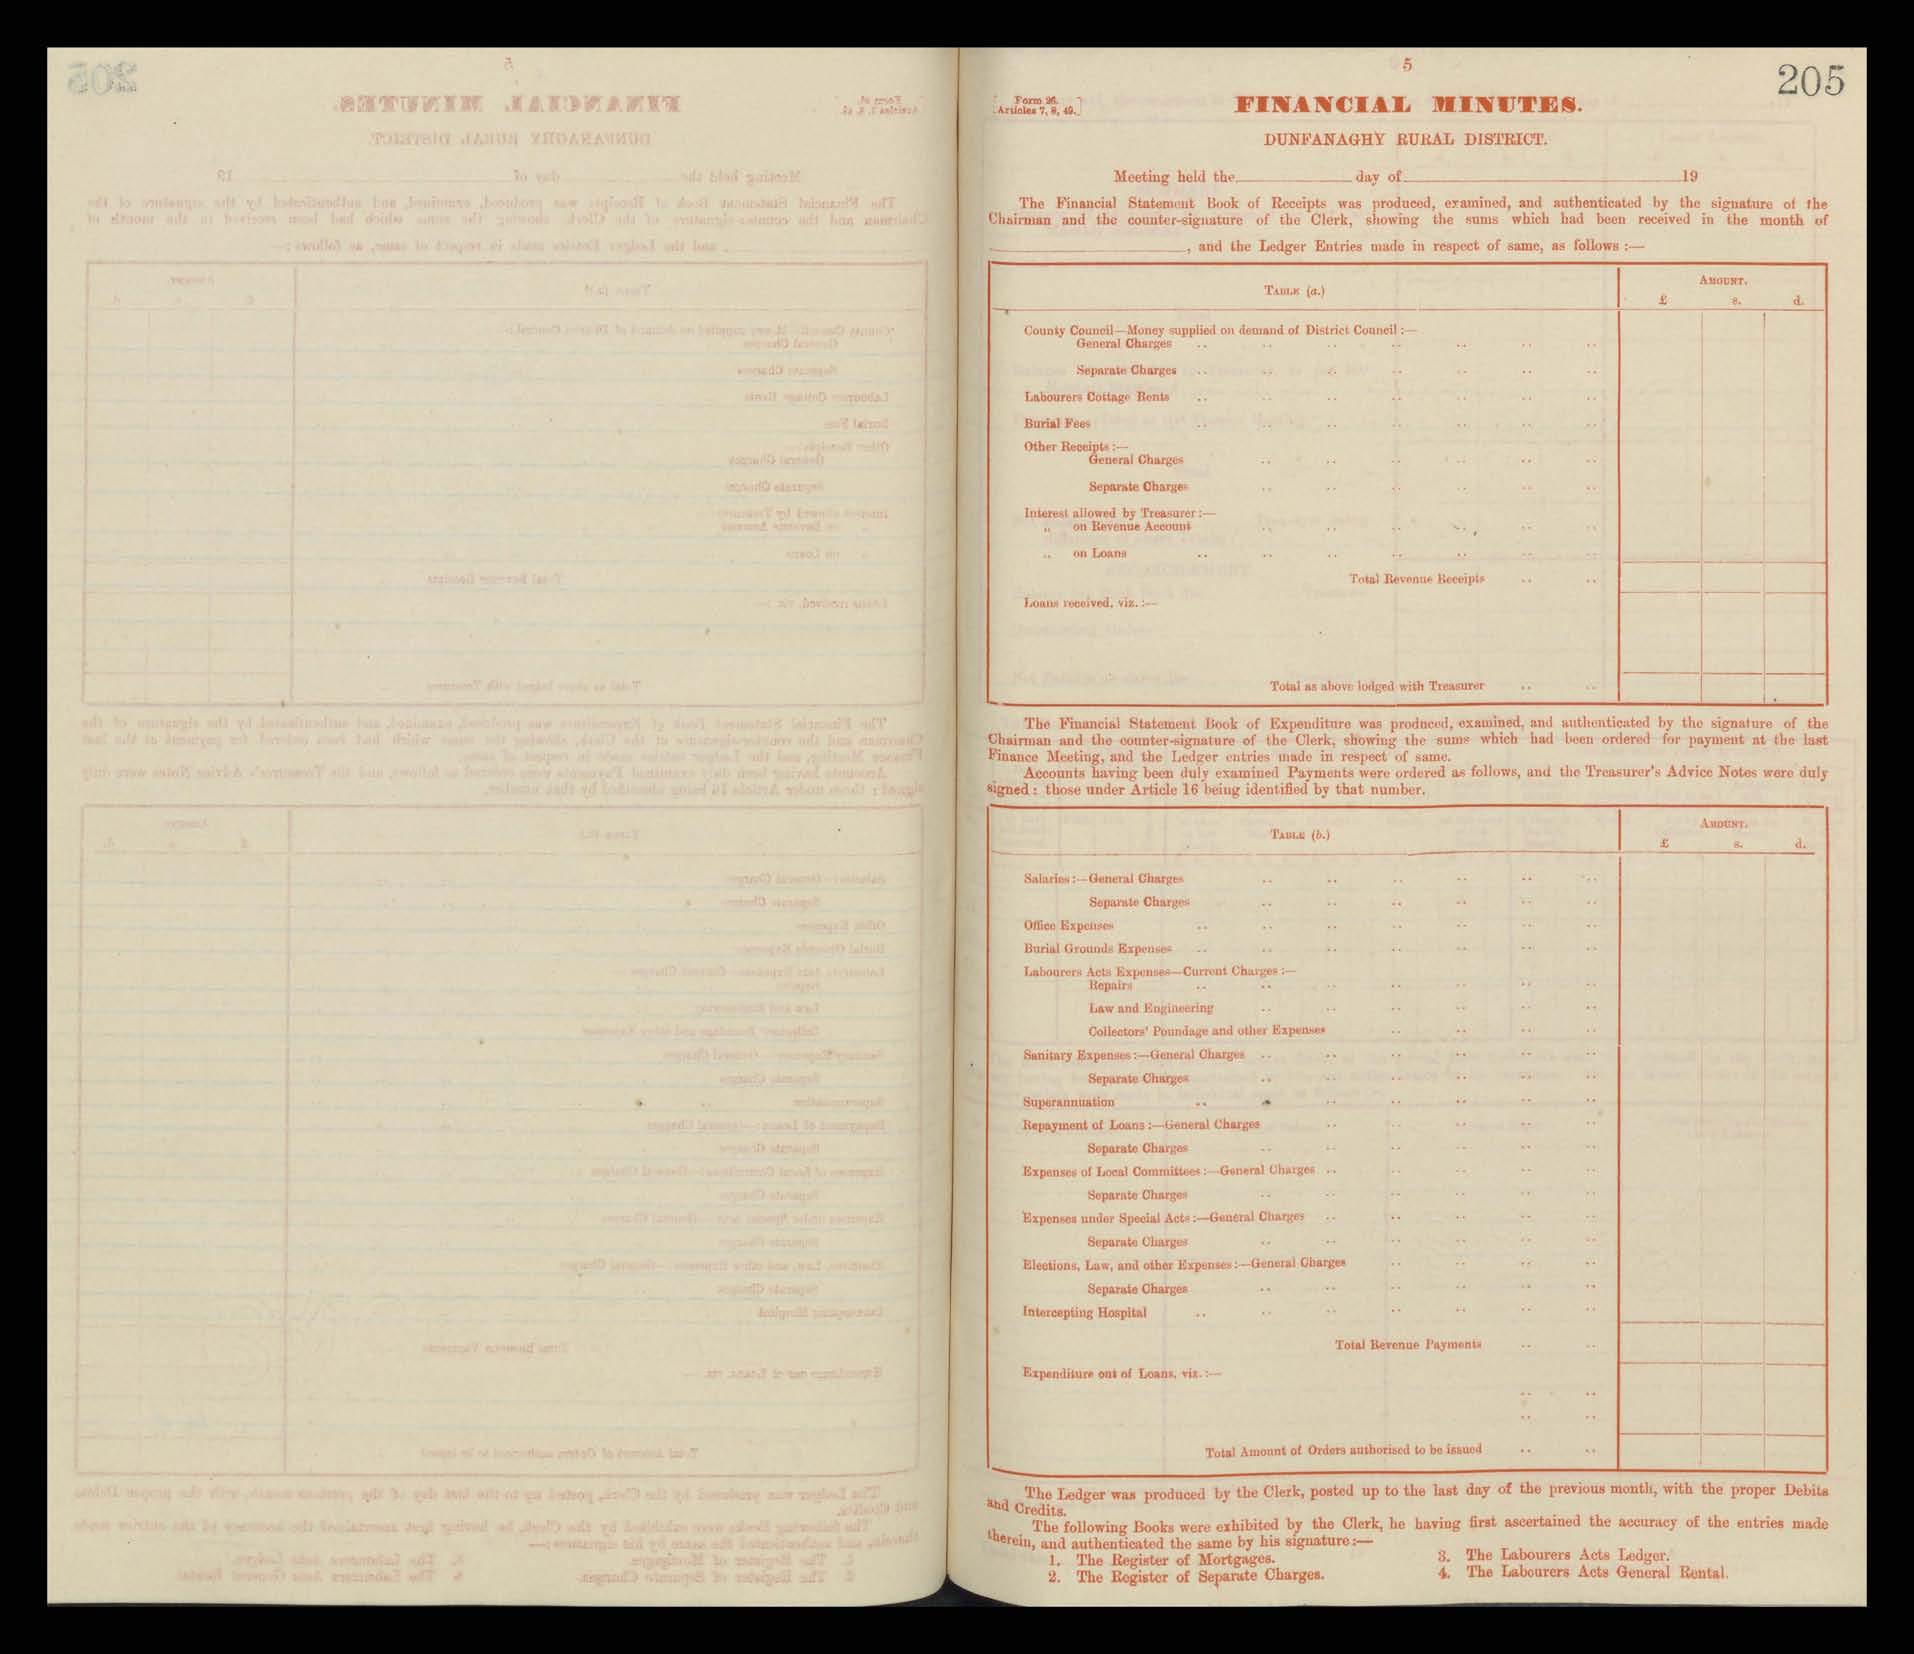 5
205
[Form 26.
Articles 7, 8, 49.]
FINANCIAL MINUTES.
DUNFANAGHY RURAL DISTRICT.
Meeting held the day of 19
The Financial Statement Book of Receipts was produced, examined, and authenticated by the signature of the
Chairman and the counter-signature of the Clerk, showing the sums which had been received in the month of
, and the Ledger Entries made in respect of same, as follows :—
TABLE (a.)
AMOUNT.
£ s. d.
County Council—Money supplied on demand of District Council :—
General Charges
Separate Charges
Labourers Cottage Rents
Burial Fees
Other Receipts :—
General Charges
Separate Charges
Interest allowed by Treasurer :—
„ on Revenue Account
„ on Loans
Total Revenue Receipts
Loans received, viz. :—
Total as above lodged with Treasurer
The Financial Statement Book of Expenditure was produced, examined, and authenticated by the signature of the
Chairman and the counter-signature of the Clerk, showing the sums which had been ordered for payment at the last
Finance Meeting, and the Ledger entries made in respect of same.
Accounts having been duly examined Payments were ordered as follows, and the Treasurer's Advice Notes were duly
signed : those under Article 16 being identified by that number.
TABLE (b.)
AMOUNT.
£ s. d.
Salaries :—General Charges
Separate Charges
Office Expenses
Burial Grounds Expenses
Labourers Acts Expenses—Current Charges :—
Repairs
Law and Engineering
Collectors' Poundage and other Expenses
Sanitary Expenses :—General Charges
Separate Charges
Superannuation
Repayment of Loans :—General Charges
Separate Charges
Expenses of Local Committees :—General Charges
Separate Charges
Expenses under Special Acts :—General Charges
Separate Charges
Elections, Law, and other Expenses :—General Charges
Separate Charges
Intercepting Hospital
Total Revenue Payments
Expenditure out of Loans, viz. :—
Total Amount of Orders authorised to be issued
The Ledger was produced by the Clerk, posted up to the last day of the previous month, with the proper Debits
and Credits.
The following Books were exhibited by the Clerk, he having first ascertained the accuracy of the entries made
therein, and authenticated the same by his signature :—
1. The Register of Mortgages.
2. The Register of Separate Charges.
3. The Labourers Acts Ledger.
4. The Labourers Acts General Rental.